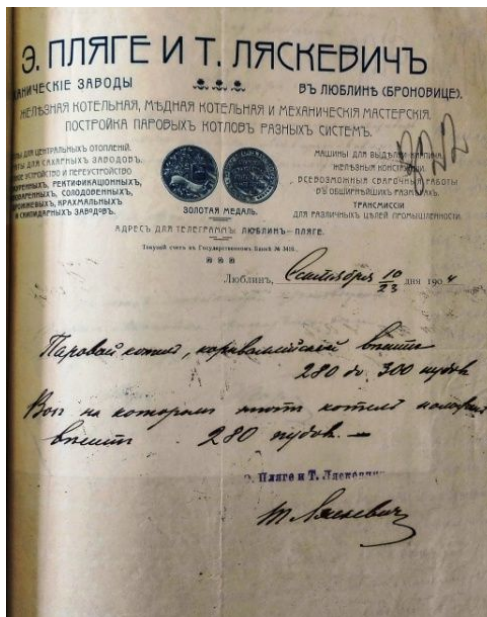 Э. ПЛЯГЕ И Т. ЛЯСКЕВИЧЪ
ХАНИЧЕСКІЕ ЗАВОДЫ
ВЪ ЛЮБЛИНѢ (БРОНОВИЦЕ).
ЖЕЛѢЗНАЯ КОТЕЛЬНАЯ, МѢДНАЯ КОТЕЛЬНАЯ И МЕХАНИЧЕСКІЯ МАСТЕРСКІЯ.
ПОСТРОЙКА ПАРОВЫХЪ КОТЛОВЪ РАЗНЫХЪ СИСТЕМЪ.
ДЛЯ ЦЕНТРАЛЬНЫХЪ ОТОПЛЕНІЙ.
ДЛЯ САХАРНЫХЪ ЗАВОДОВЪ.
УСТРОЙСТВО И ПЕРЕУСТРОЙСТВО
РЕКТИФИКАЦІОННЫХЪ,
СОЛОДОВЕННЫХЪ,
КРАХМАЛЬНЫХЪ
И СКИПИДАРНЫХЪ ЗАВОДОВЪ.
ЗОЛОТАЯ МЕДАЛЬ.
МАШИНЫ ДЛЯ ВЫДѢЛКИ КИРПИЧА.
ЖЕЛѢЗНЫЯ КОНСТРУКЦІИ.
ВСЕВОЗМОЖНЫЯ СВАРОЧНЫЯ РАБОТЫ
ВЪ ОБШИРНѢЙШИХЪ РАЗМѢРАХЪ.
ТРАНСМИССІИ
ДЛЯ РАЗЛИЧНЫХЪ ЦѢЛЕЙ ПРОМЫШЛЕННОСТИ.
322
АДРЕСЪ ДЛЯ ТЕЛЕГРАММЪ: ЛЮБЛИНЪ—ПЛЯГЕ.
Текущій счетъ въ Государственномъ Банкѣ № 3416.
Люблинъ, Сентября 10/23 дня 1904
Паровой котелъ, корнваллійскій вѣситъ
280 до 300 пудовъ
Возъ на которомъ котелъ
вѣситъ 280 пудовъ. —
Э. Пляге и Т. Ляскевичъ
Т Ляскевичъ